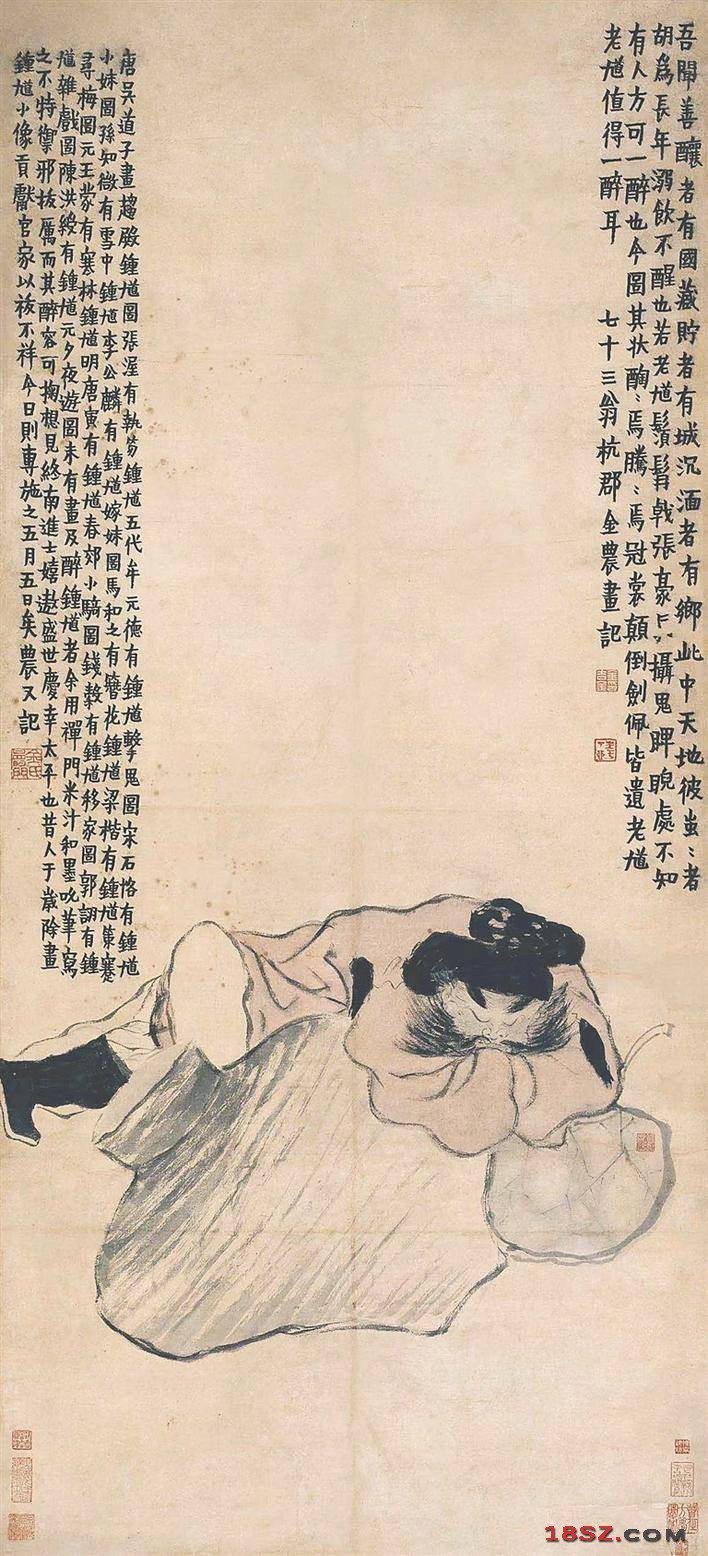 吾聞善釀者有國藏貯者有城沉湎者有鄉此中天地彼蚩〻者
胡為長年溺飲不醒也若老馗鬚髯戟張豪攝鬼睥睨處不知
有人方可一醉也今圖其状醄〻焉騰〻焉冠裳顛倒劍佩皆遺老馗
老馗值得一醉耳 七十三翁杭郡金農畫記
唐吳道子畫趨殿鍾馗圖張渥有執笏鍾馗五代牟元德有鍾馗擊鬼圖宋石恪有鍾馗
小妹圖孫知微有雪中鍾馗李公麟有鍾馗嫁妹圖馬和之有簪花鍾馗梁楷有鍾馗策蹇
尋梅圖元王蒙有寒林鍾馗明唐寅有鍾馗春郊小騎圖錢穀有鍾馗移家圖郭詡有鍾
馗雜戲圖陳洪綬有鍾馗元夕夜遊圖未有畫及醉鍾馗者余用禪門米汁和墨吮筆寫
之不特禦邪拔厲而其醉容可掬想見終南進士嬉遨盛世慶幸太平也昔人于歲除畫
鍾馗小像貢獻官家以祓不祥今日則專施之五月五日矣農又記
18SZ.COM